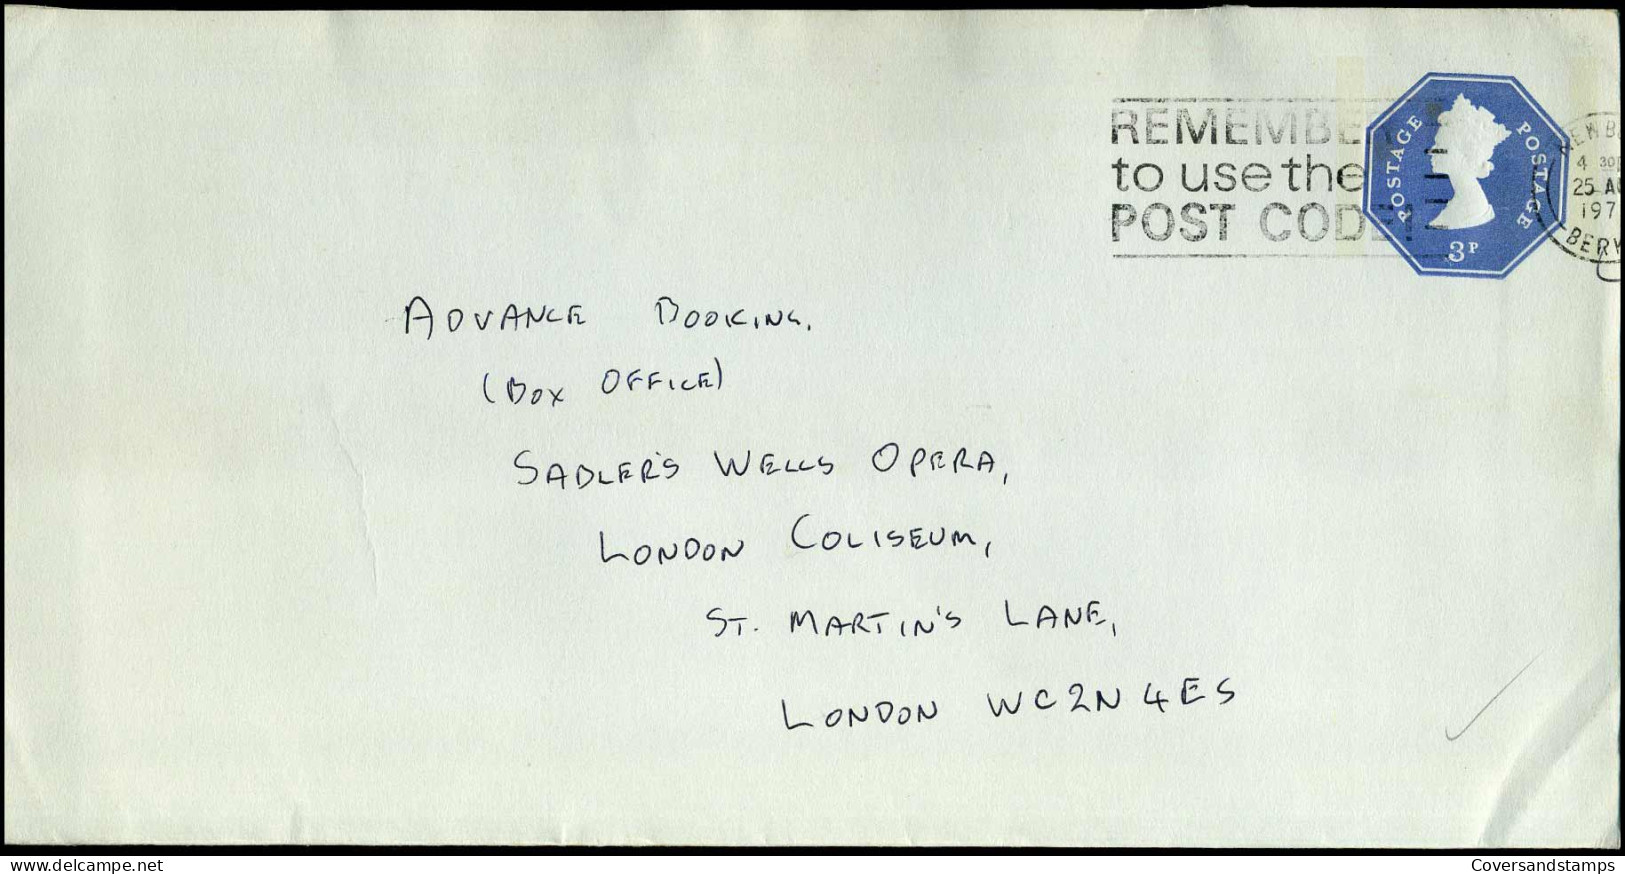 REMEMBE
to use the
POST CODE
POSTAGE POSTAGE
3P
4 30
25 AU
197
ADVANCE BOOKING.
(BOX OFFICE)
SADLER'S WELLS OPERA,
LONDON COLISEUM,
ST. MARTIN'S LANE,
LONDON WC2N 4ES
Coversandstamps.eu on delcampe.net
Coversandstamps